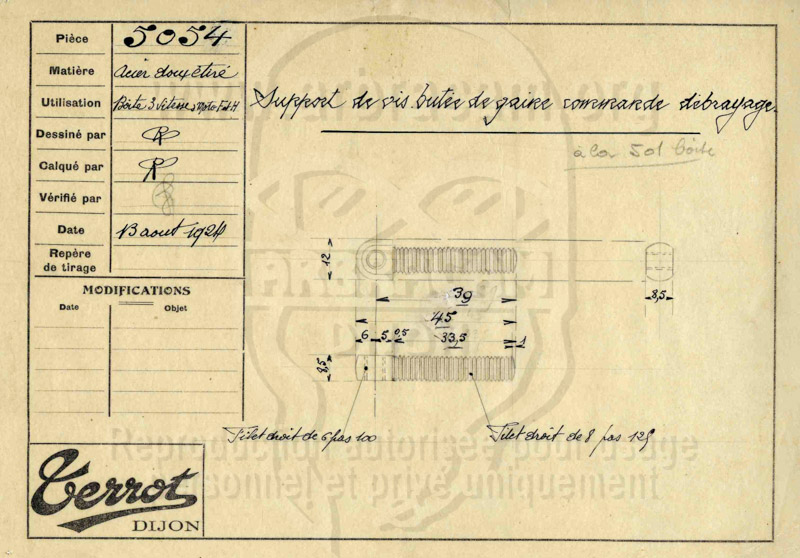 Pièce 5054
Matière Acier doux étiré
Utilisation Boîte 3 Vitesses Moto
Dessiné par
Calqué par
Vérifié par
Date 13 aout 1924
Repère
de tirage
MODIFICATIONS
Date Objet
Support de vis butée de gaine commande débrayage.
501 boîte
12
8,5
39
45
6 5 0,5 33,5 1
8,5
Filet droit de 6 pas 100
Filet droit de 8 pas 125
Terrot
DIJON
Reproduction autorisée pour usage
personnel et privé uniquement